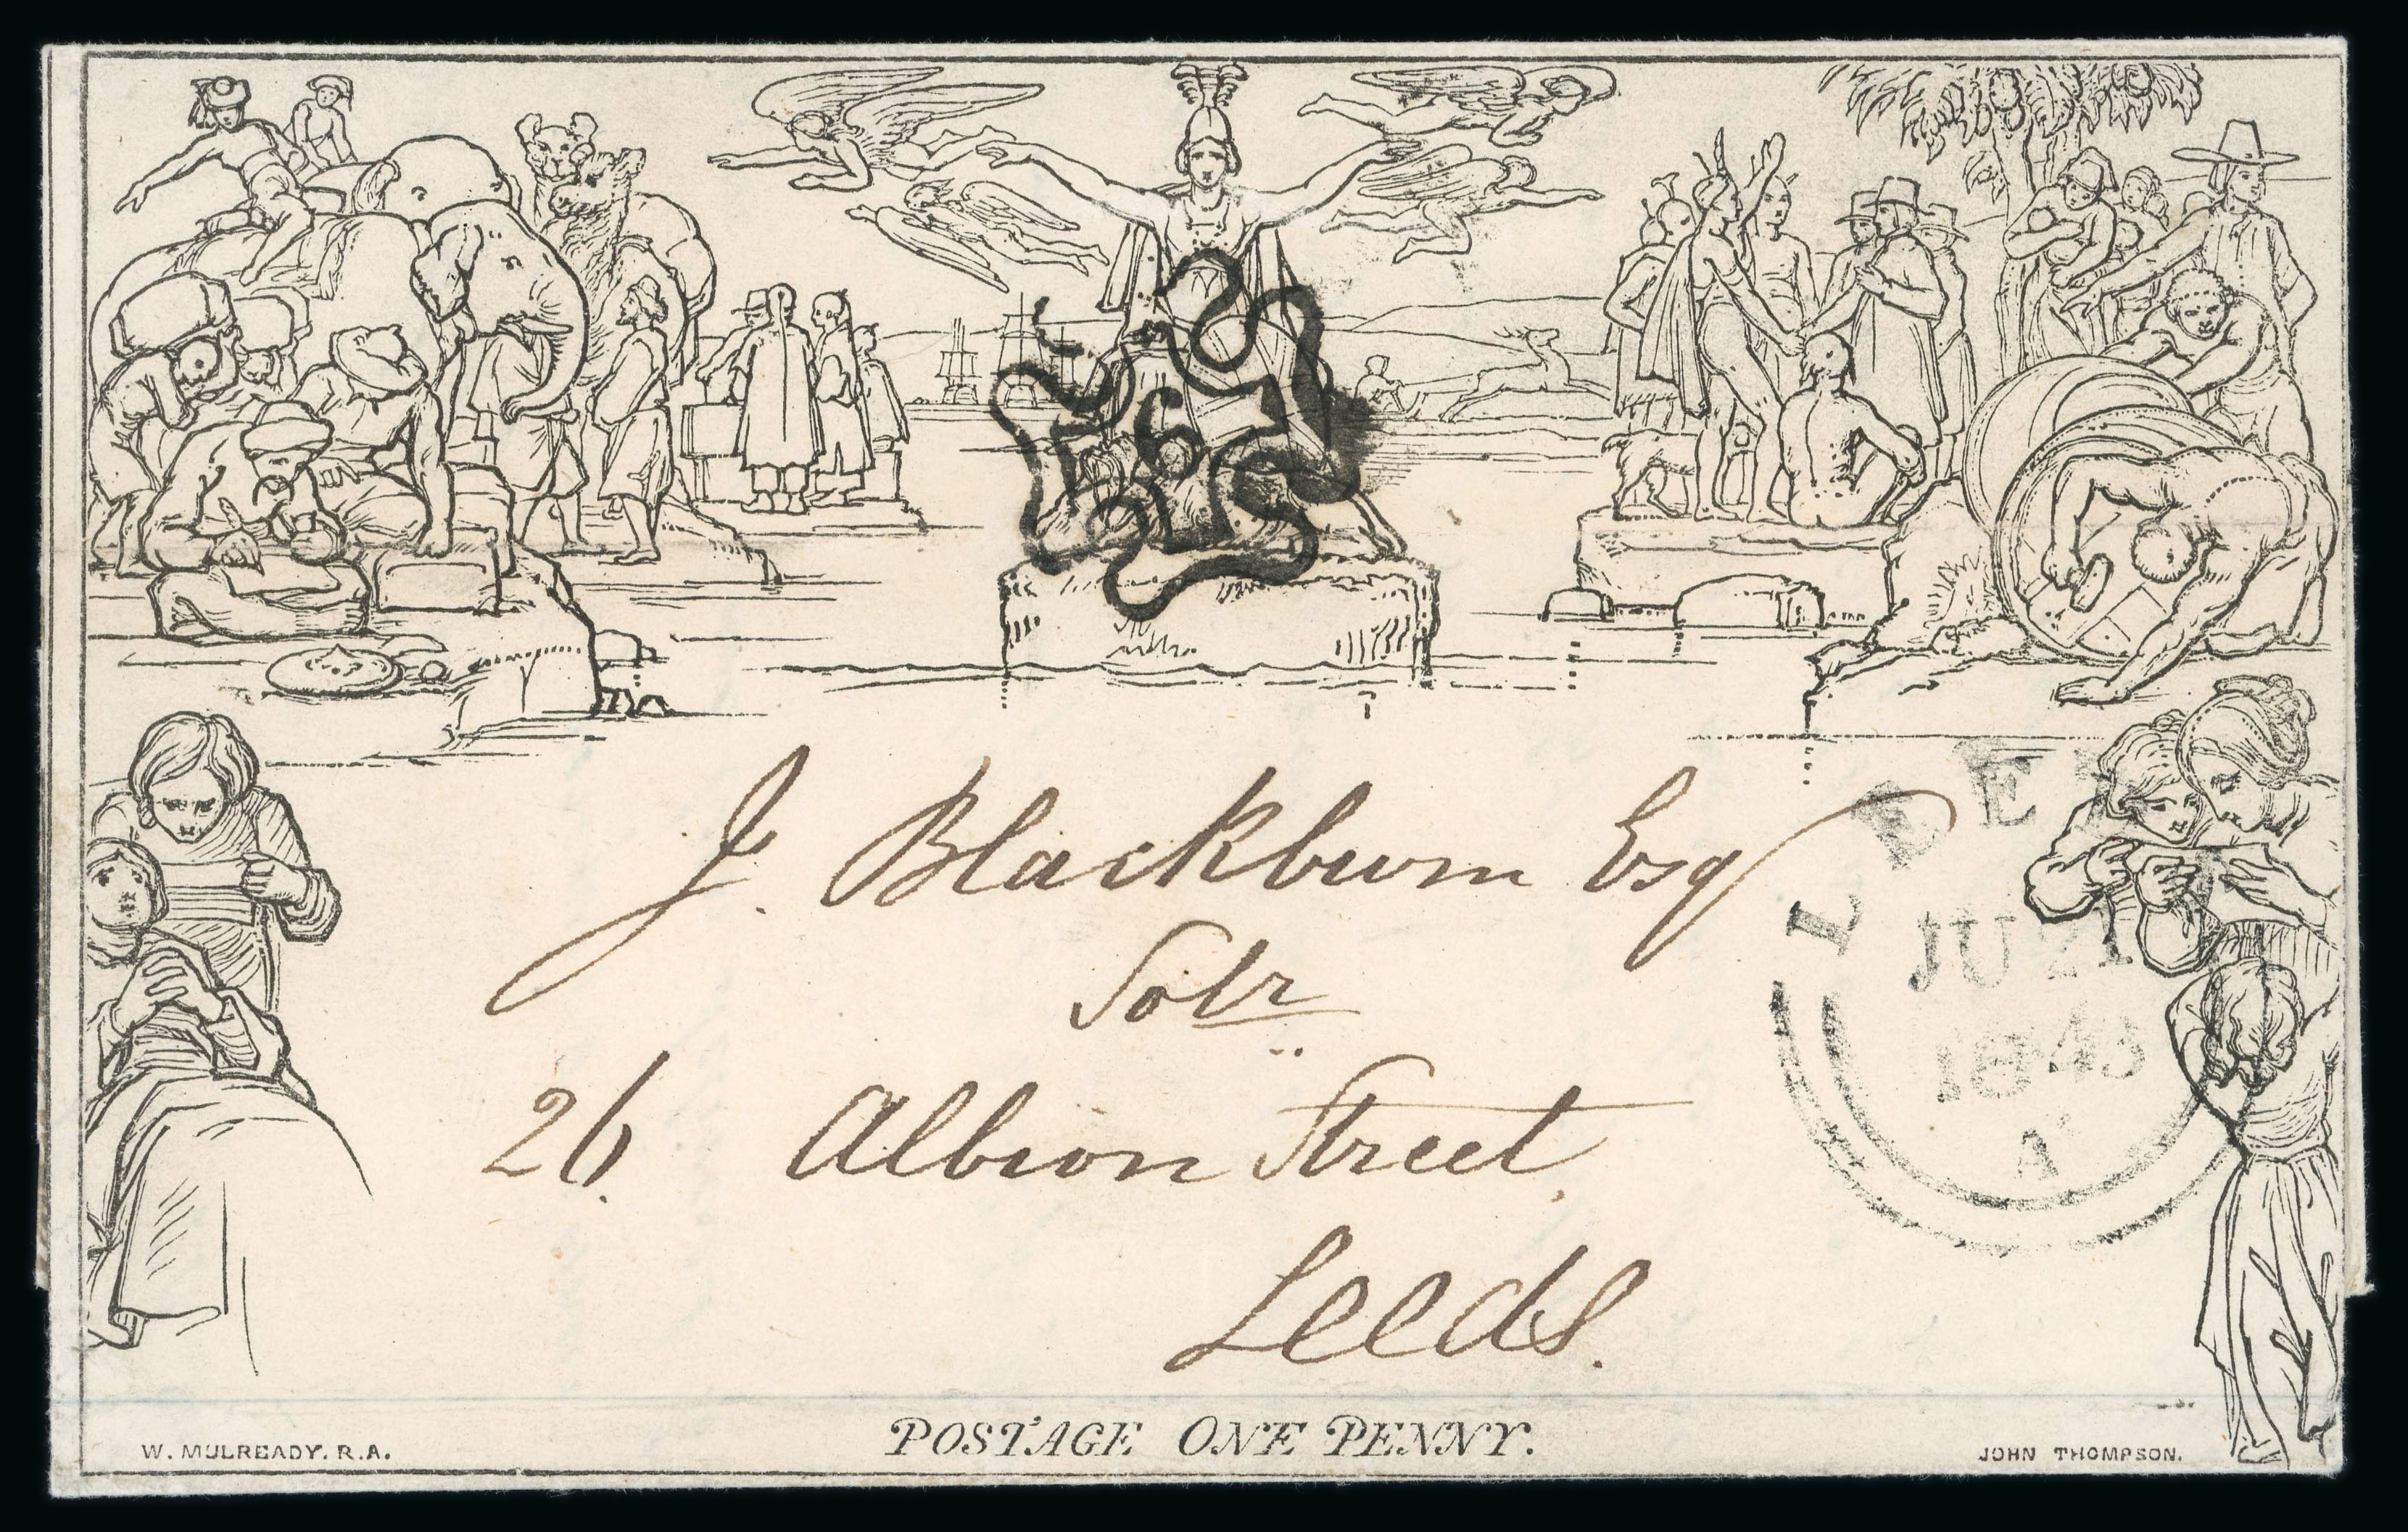 J. Blackburn Esq
Solr
26. Albion Street.
Leeds.
JU 21
1843
A
POSTAGE ONE PENNY.
W. MULREADY. R.A.
JOHN THOMPSON.
6